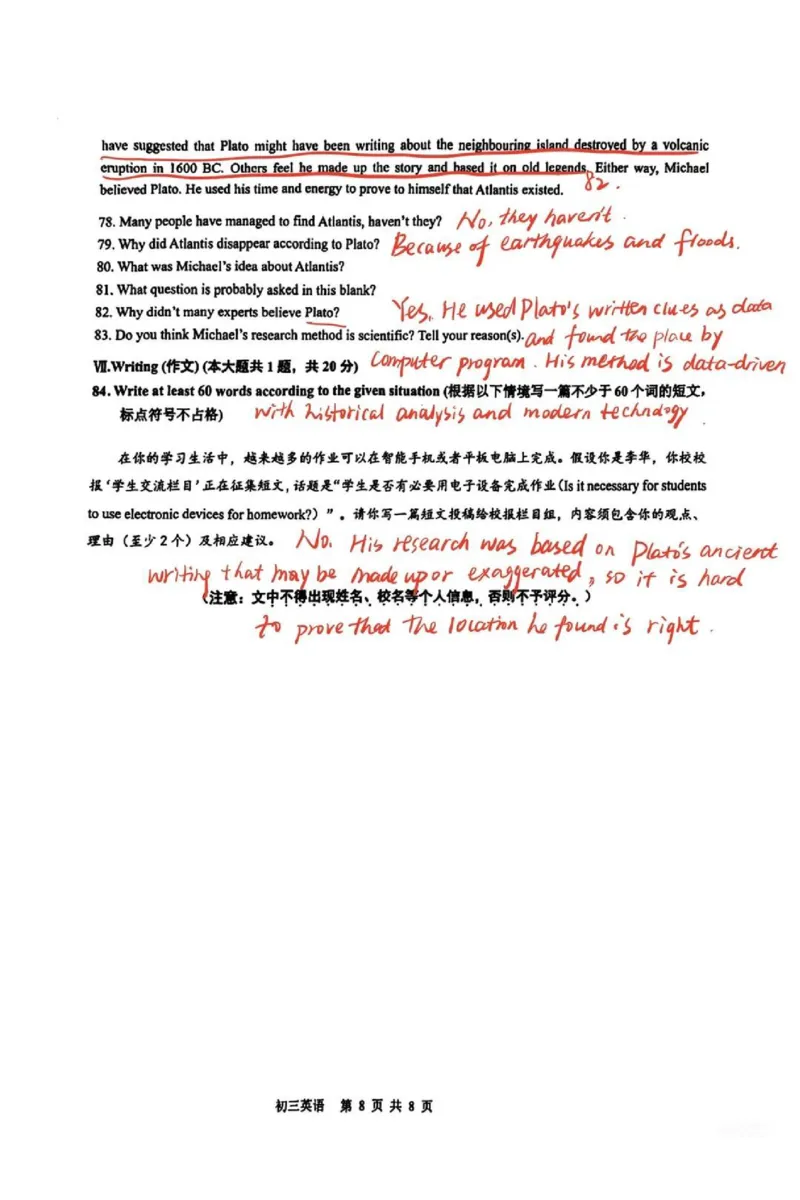 have suggested that Plato might have been writing about the neighbouring island destroyed by a volcanic
eruption in 1600 BC. Others feel he made up the story and based it on old legends. Either way, Michael
82.
believed Plato. He used his time and energy to prove to himself that Atlantis existed.
78. Many people have managed to find Atlantis, haven't they? No, they haven't.
79. Why did Atlantis disappear according to Plato? Because of earthquakes and floods.
80. What was Michael's idea about Atlantis?
81. What question is probably asked in this blank?
82. Why didn't many experts believe Plato? Yes, He used Plato's written clues as data
83. Do you think Michael's research method is scientific? Tell your reason(s). and found the place by
Ⅶ.Writing (作文) (本大题共 1 题，共 20 分) Computer program. His method is data-driven
84. Write at least 60 words according to the given situation (根据以下情境写一篇不少于 60 个词的短文，
标点符号不占格) with historical analysis and modern technology.
在你的学习生活中，越来越多的作业可以在智能手机或者平板电脑上完成。假设你是李华，你校校
报‘学生交流栏目’正在征集短文，话题是“学生是否有必要用电子设备完成作业(Is it necessary for students
to use electronic devices for homework?) ”。请你写一篇短文投稿给校报栏目组，内容须包含你的观点、
理由（至少 2 个）及相应建议。 No. His research was based on Plato's ancient
writing that may be made up or exaggerated, so it is hard
(注意：文中不得出现姓名、校名等个人信息，否则不予评分。)
to prove that the location he found is right.
初三英语 第 8 页 共 8 页